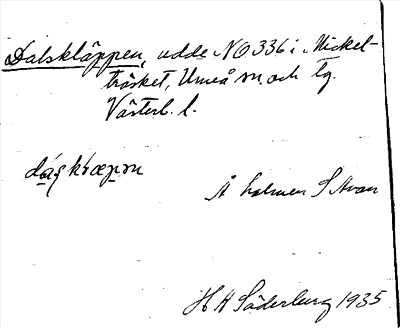 Dalskläppen, udde NO 336 i Mickel-
träsket, Umeå sn. och tg.
Västerb. l.
Å holmen S Avan
H H Söderburg 1935